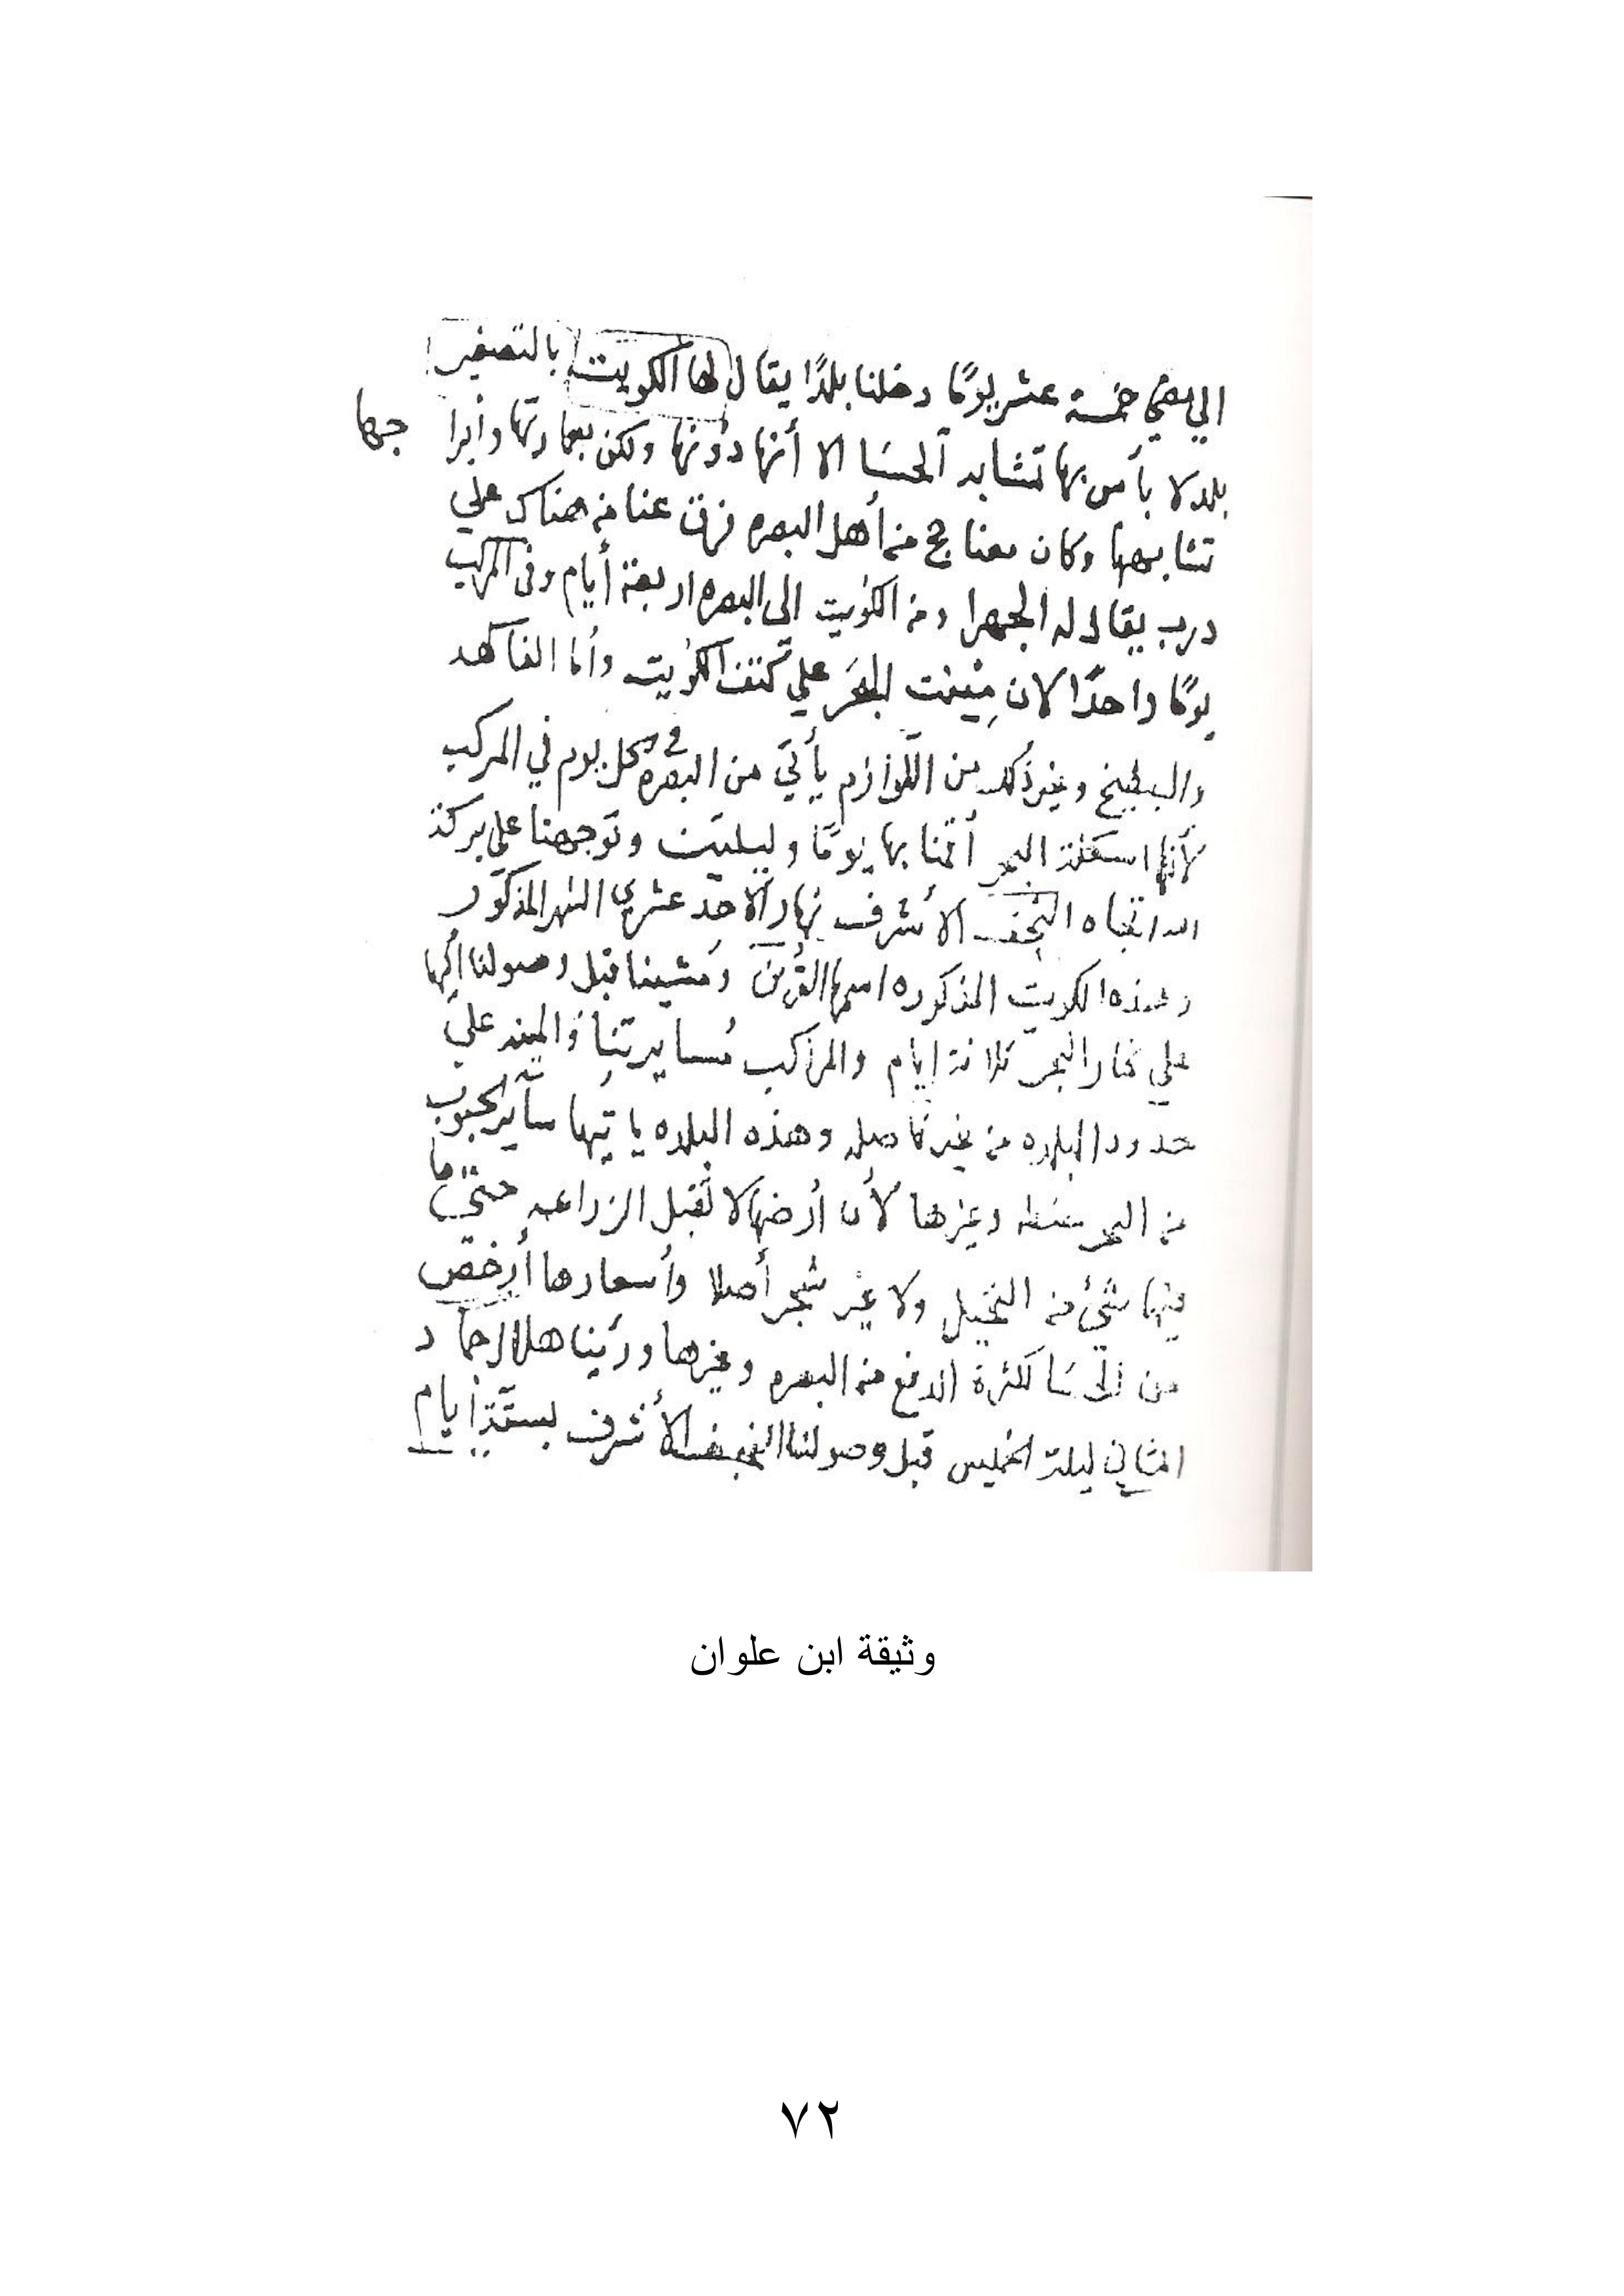 الي مضي خمسة عشر يومًا دخلنا بلدًا يقال لها الكويت بالتصغير
بلد لا بأس بها تشابه الحسَا الا أنها دوُنها ولكن بعمارتها وأبرا جها
تشابهها وكان معنا حج من أهل البصره فرق عنا من هناك علي
درب يقال له الجهرا ومن الكوُيت الى البصره اربعة أيام وفى المركب
يومًا واحدًا لان مِينت البحَر علي كتف الكوُيت وأما الفاكهه
والبطيخ وغير ذلك من اللّوازم يأتيَ من البصره في كل يوم في المركب
لأنها اسكلة البحر أقمنا بها يومًا وليلتين وتوَجهنا علي بركة
الله تجاه النجف الأشرف نهار الأحد عشر من الشهر المذكوَر
وهذه الكويت المذكوره اسمها القُرين ومَشينا قبل وصولنا إليها
علي كنار البحر ثلاثة إيام والمراكب مُسايرتنِا وَالمينه عليَ
حدود البلده من غير فاصله وهذه البلده ياتيها سآير الحبوب
من البحر حنطه وغيرها لأن أرضها لا تقبل الزراعه حتىَ ما
فيها شيء من النخيل ولا غير شجر أصلا وأسعارها أرخص
من الحسَا لكثرة الدفع من البصره وغيرها ورئينا هلال جماد
الثاني ليلة الخميس قبل وصولنا النجف الأشرف بستّة أيام
وثيقة ابن علوان
٧٢